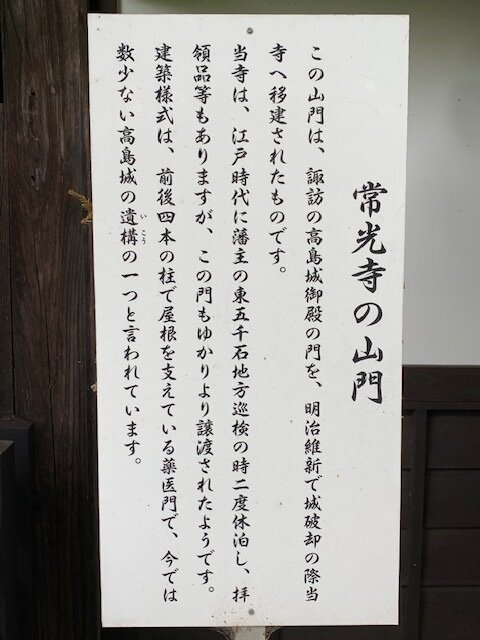 常光寺の山門
この山門は、諏訪の高島城御殿の門を、明治維新で城破却の際当
寺へ移建されたものです。
当寺は、江戸時代に藩主の東五千石地方巡検の時二度休泊し、拝
領品等もありますが、この門もゆかりより譲渡されたようです。
建築様式は、前後四本の柱で屋根を支えている薬医門で、今では
数少ない高島城の遺構の一つと言われています。
いこう